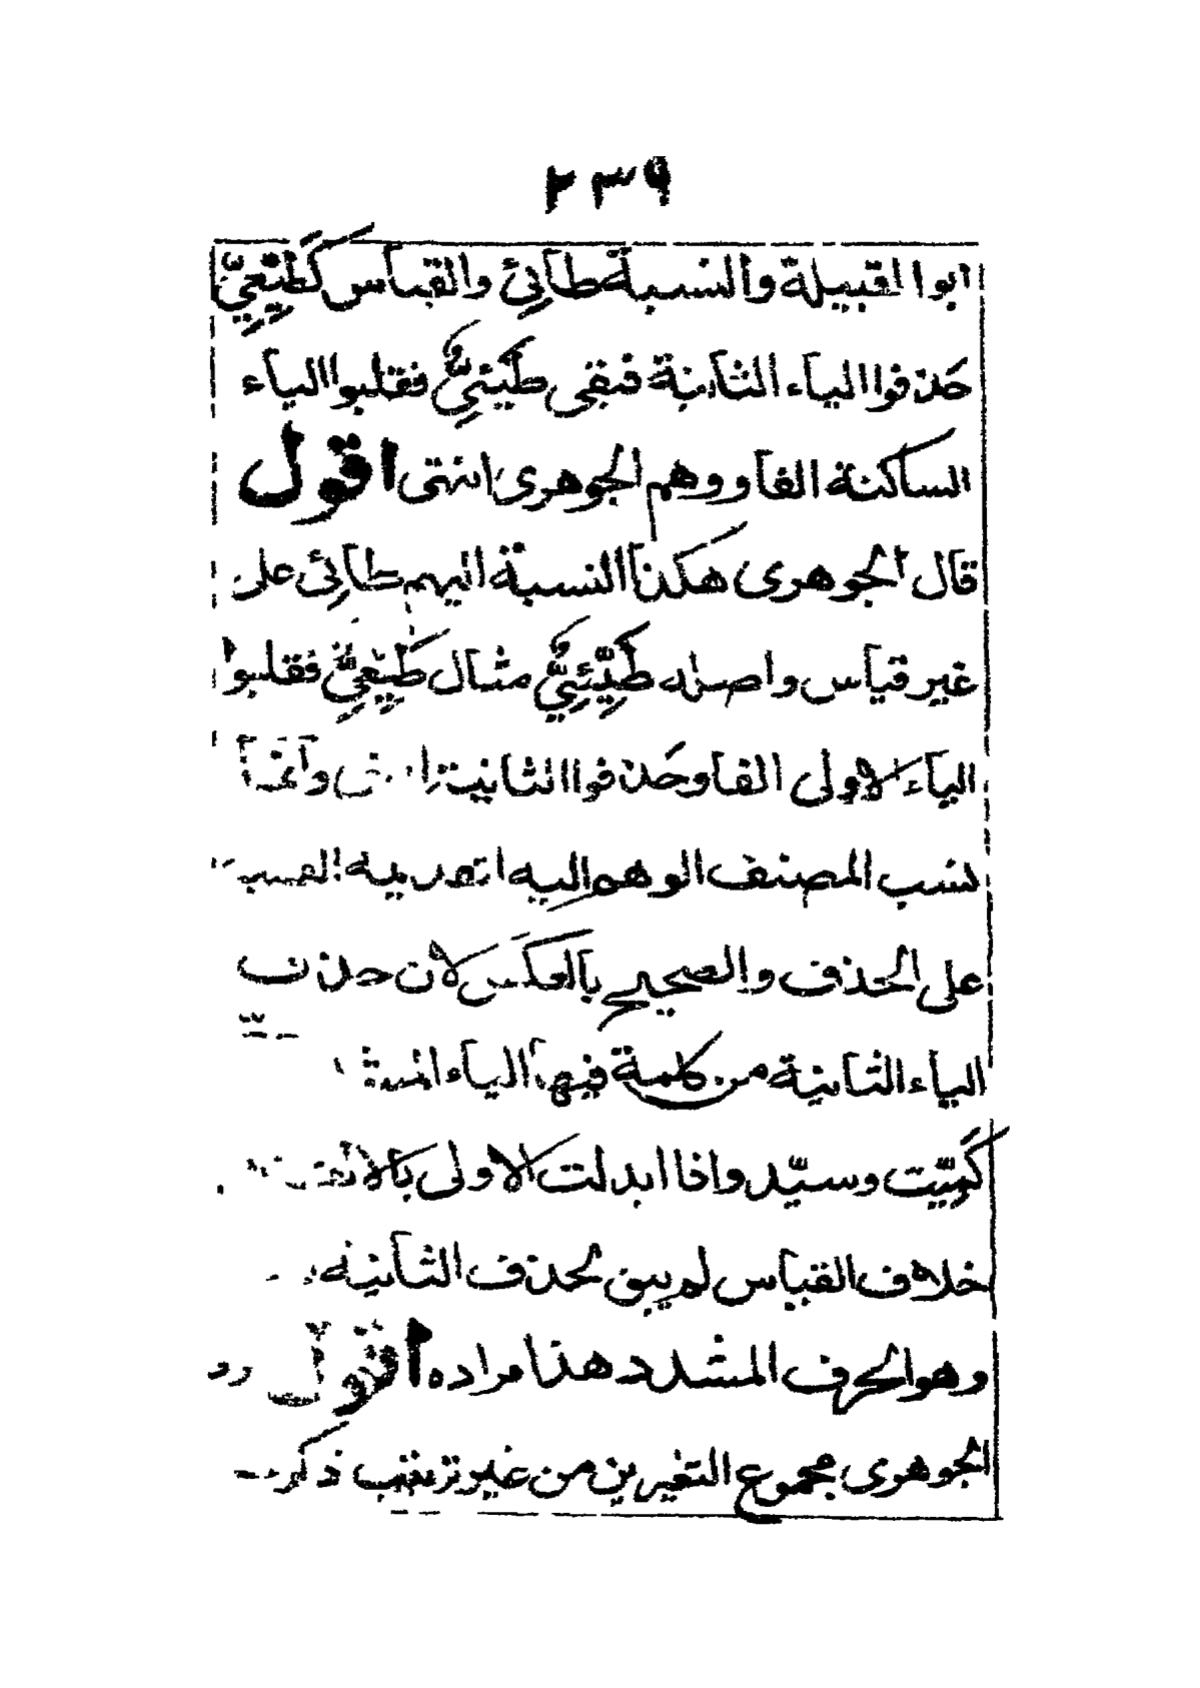 ٢٣٩
ابوا القبيلة والنسبة طائئ والقياس كَطَيِّعِيّ
حَذفوا الياء الثانية فبقى طَيْئِيٌّ فقلبوا الياء
الساكنة الفا ووهم الجوهرى انتهى اقول
قال الجوهرى هكذا النسبة اليهم طائى على
غير قياس واصله طَيِّئِيٌّ مثال طَيِّعِيٌّ فقلبوا
الياء الاولى الفا وحَذفوا الثانية وانما
نسب المصنف الوهم اليه لتقديمه القلب
على الحذف والصحيح بالعكس لان حذف
الياء الثانية من كلمة فيها الياء
كَمَيِّت وسيّد واذا ابدلت الاولى بالالف
خلاف القياس لم يبق لحذف الثانية
وهو الحرف المشدد هذا مراده اقول
الجوهرى مجموع التغيرين من غير ترتيب ذكر